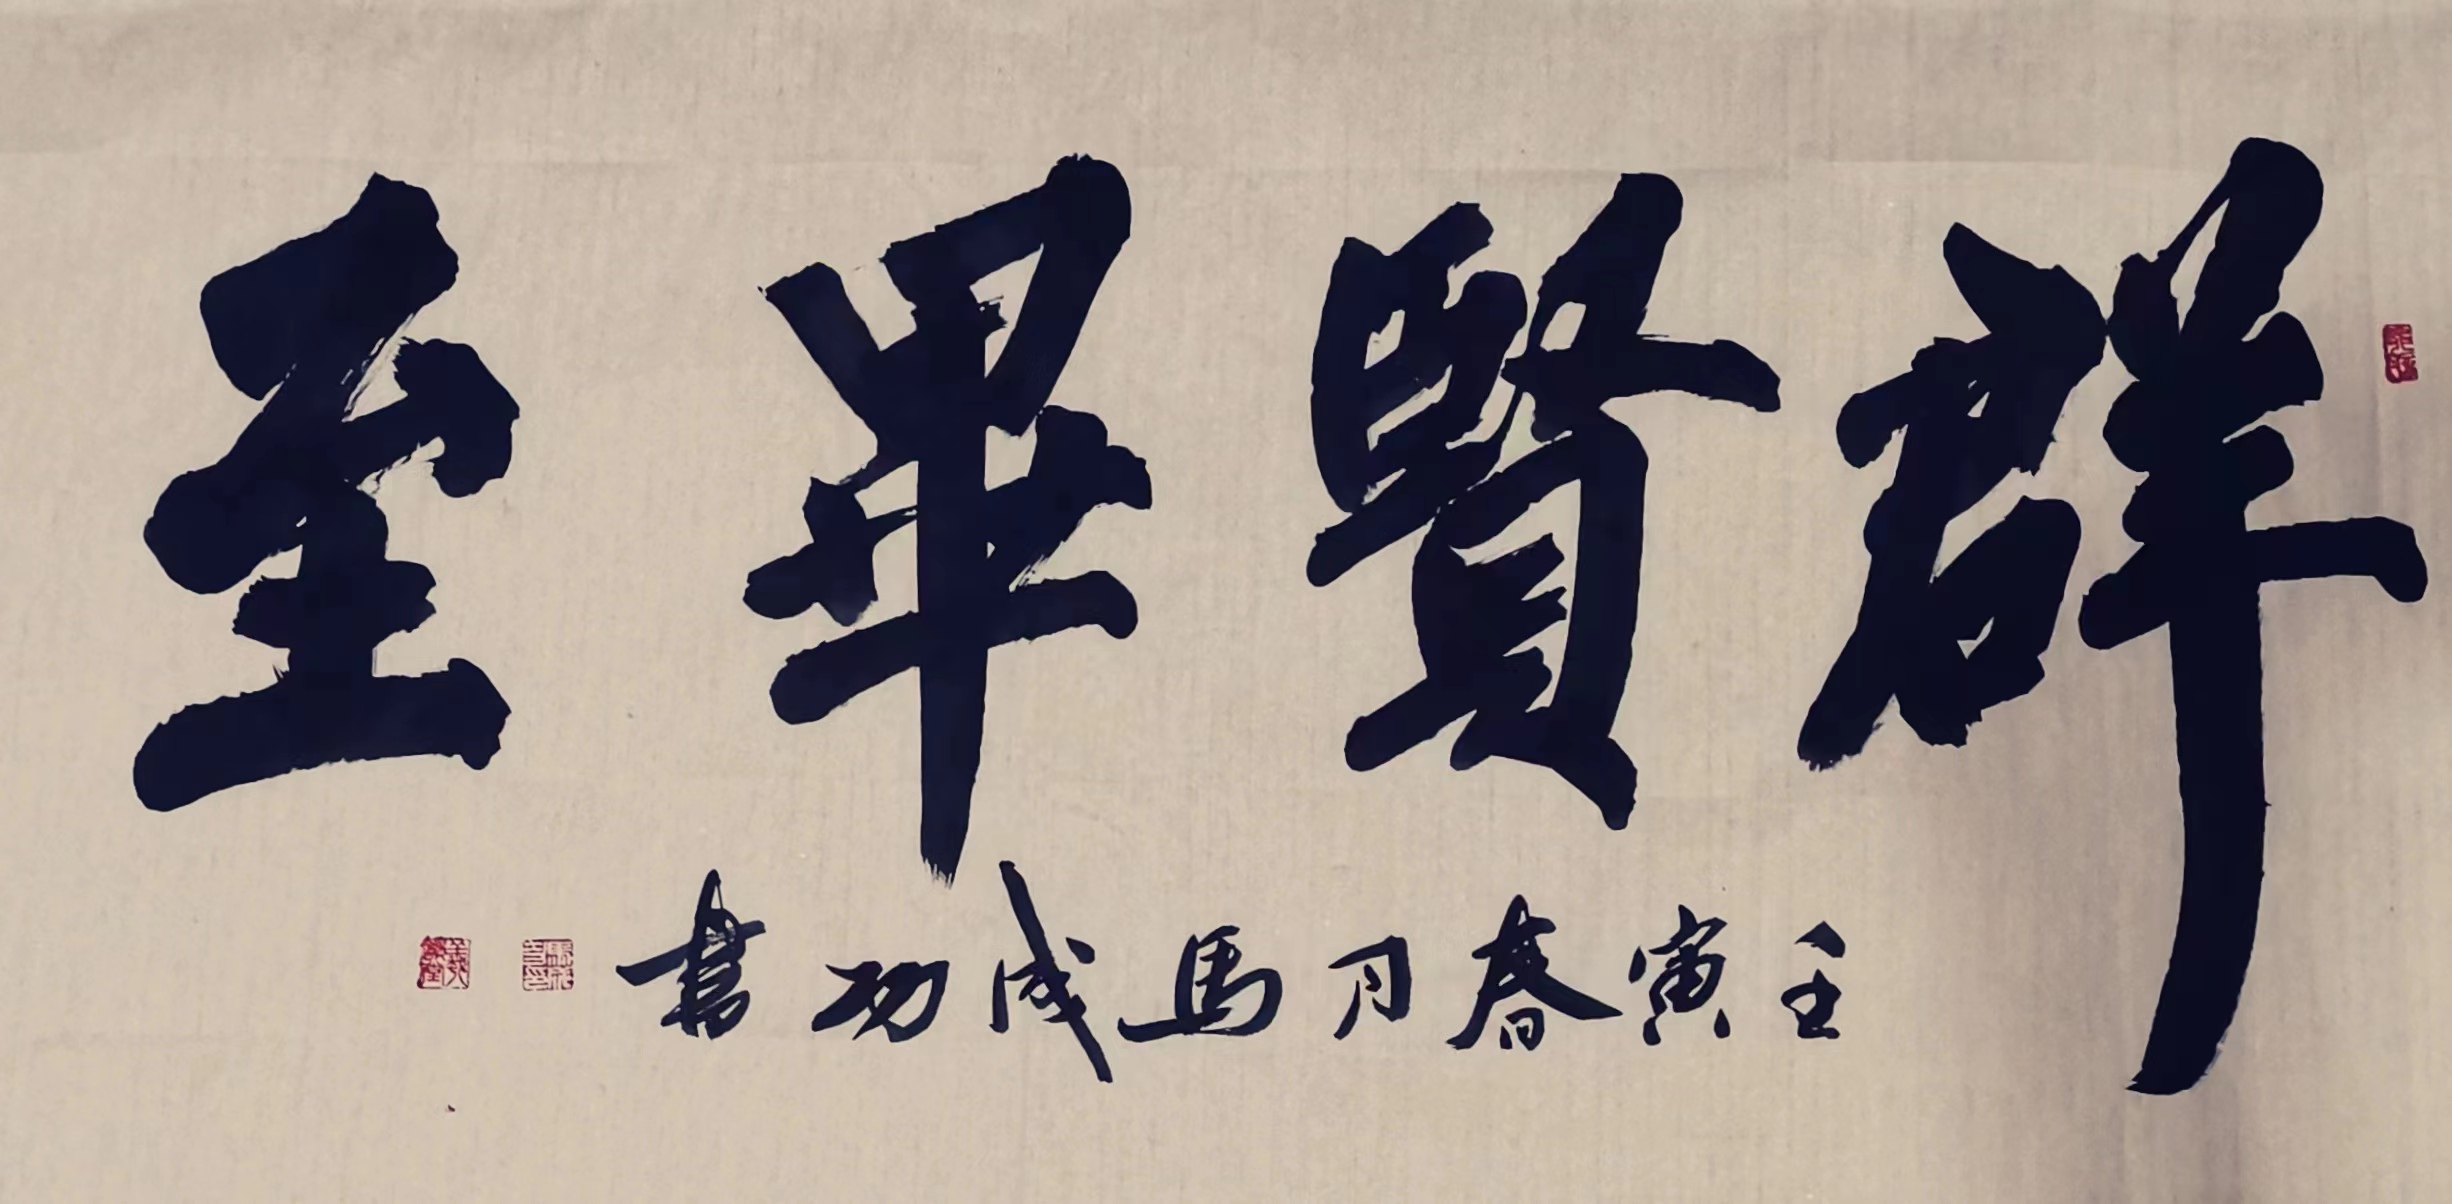 群賢畢至
壬寅春月馬成功書